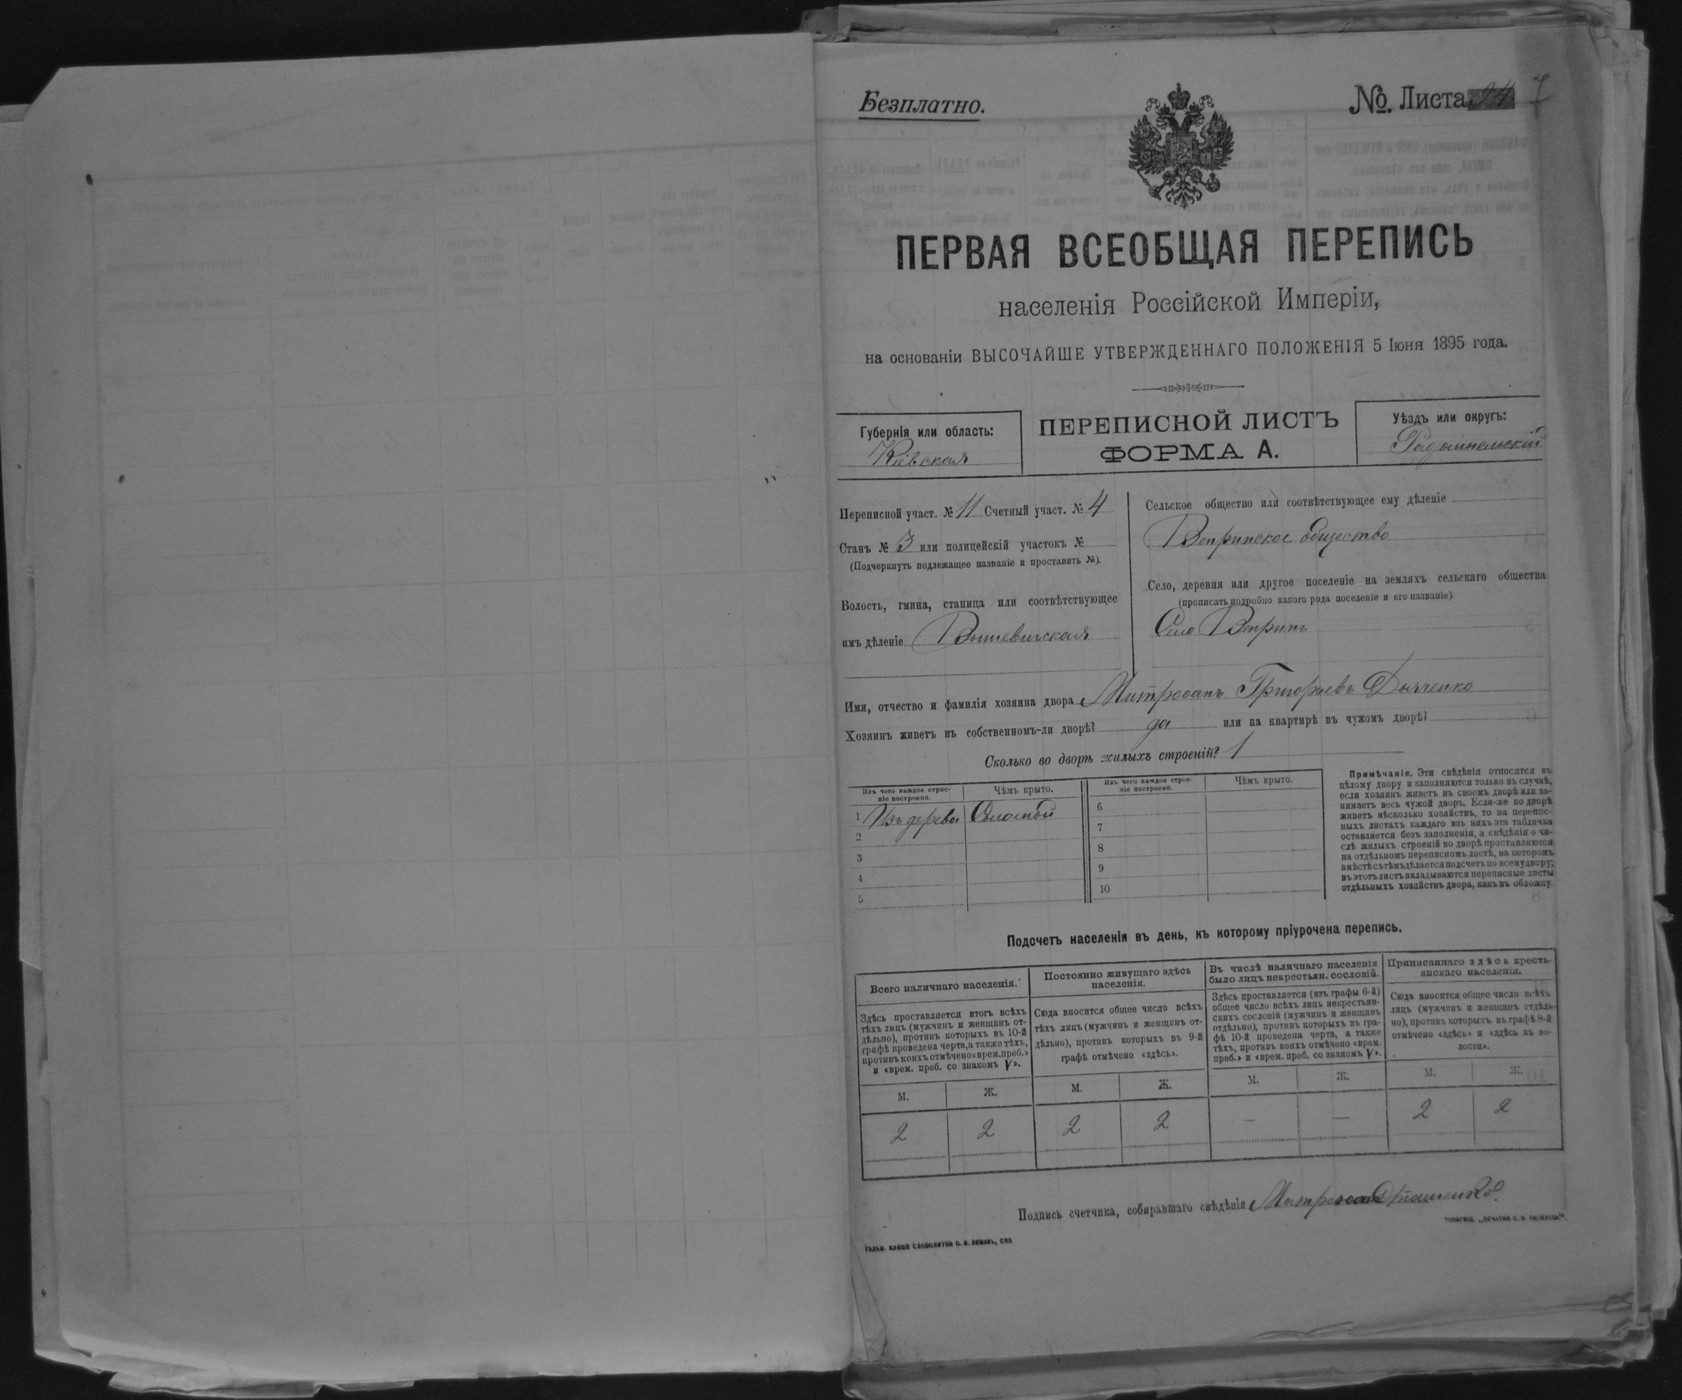 Безплатно.
№ Листа 7
ПЕРВАЯ ВСЕОБЩАЯ ПЕРЕПИСЬ
населенія Россійской Имперіи,
на основаніи ВЫСОЧАЙШЕ УТВЕРЖДЕННАГО ПОЛОЖЕНІЯ 5 Іюня 1895 года.
Губернія или область:
Кіевская
ПЕРЕПИСНОЙ ЛИСТЪ
ФОРМА А.
Уѣздъ или округъ:
Радомысльскій
Переписной участ. № 11 Счетный участ. № 4
Станъ № 3 или полицейскій участокъ №
(Подчеркнуть подлежащее названіе и проставить №).
Волость, гмина, станица или соотвѣтствующее
имъ дѣленіе Вышевичская
Сельское общество или соотвѣтствующее ему дѣленіе
Вепринское общество
Село, деревня или другое поселеніе на земляхъ сельскаго общества
(прописать подробно какого рода поселеніе и его названіе)
Село Вепринъ
Имя, отчество и фамилія хозяина двора Митрофанъ Григорьевъ Дьяченко
Хозяинъ живетъ въ собственномъ-ли дворѣ? да или на квартирѣ въ чужомъ дворѣ?
Сколько во дворѣ жилыхъ строеній? 1
Изъ чего каждое строе-
ніе построено.
Чѣмъ крыто.
1 Изъ дерева Соломой
2
3
4
5
Изъ чего каждое строе-
ніе построено.
Чѣмъ крыто.
6
7
8
9
10
Примѣчаніе. Эти свѣдѣнія относятся къ
цѣлому двору и заполняются только въ случаѣ,
если хозяинъ живетъ въ своемъ дворѣ или за-
нимаетъ весь чужой дворъ. Если-же во дворѣ
живетъ нѣсколько хозяйствъ, то на перепис-
ныхъ листахъ каждаго изъ нихъ эта табличка
оставляется безъ заполненія, а свѣдѣнія о чи-
слѣ жилыхъ строеній во дворѣ проставляются
на отдѣльномъ переписномъ листѣ, на которомъ
вмѣстѣ съ тѣмъ дѣлается подсчетъ по всему двору;
въ этотъ листъ вкладываются переписные листы
отдѣльныхъ хозяйствъ двора, какъ въ обложку.
Подсчетъ населенія въ день, къ которому пріурочена перепись.
Всего наличнаго населенія.
Здѣсь проставляется итогъ всѣхъ
тѣхъ лицъ (мужчинъ и женщинъ от-
дѣльно), противъ которыхъ въ 10-й
графѣ проведена черта, а также тѣхъ,
противъ коихъ отмѣчено «врем. преб.»
и «врем. преб. со знакомъ V».
М. Ж.
2 2
Постоянно живущаго здѣсь
населенія.
Сюда вносится общее число всѣхъ
тѣхъ лицъ (мужчинъ и женщинъ от-
дѣльно), противъ которыхъ въ 9-й
графѣ отмѣчено «здѣсь».
М. Ж.
2 2
Въ числѣ наличнаго населенія
было лицъ некрестьян. сословій.
Здѣсь проставляется (изъ графы 6-й)
общее число всѣхъ лицъ некрестьян-
скихъ сословій (мужчинъ и женщинъ
отдѣльно), противъ которыхъ въ гра-
фѣ 10-й проведена черта, а также
тѣхъ, противъ коихъ отмѣчено «врем.
преб.» и «врем. преб. со знакомъ V».
М. Ж.
— —
Приписаннаго здѣсь кресть-
янскаго населенія.
Сюда вносится общее число всѣхъ
лицъ (мужчинъ и женщинъ отдѣль-
но), противъ которыхъ въ графѣ 8-й
отмѣчено «здѣсь» и «здѣсь въ во-
лости».
М. Ж.
2 2
Подпись счетчика, собиравшаго свѣдѣнія